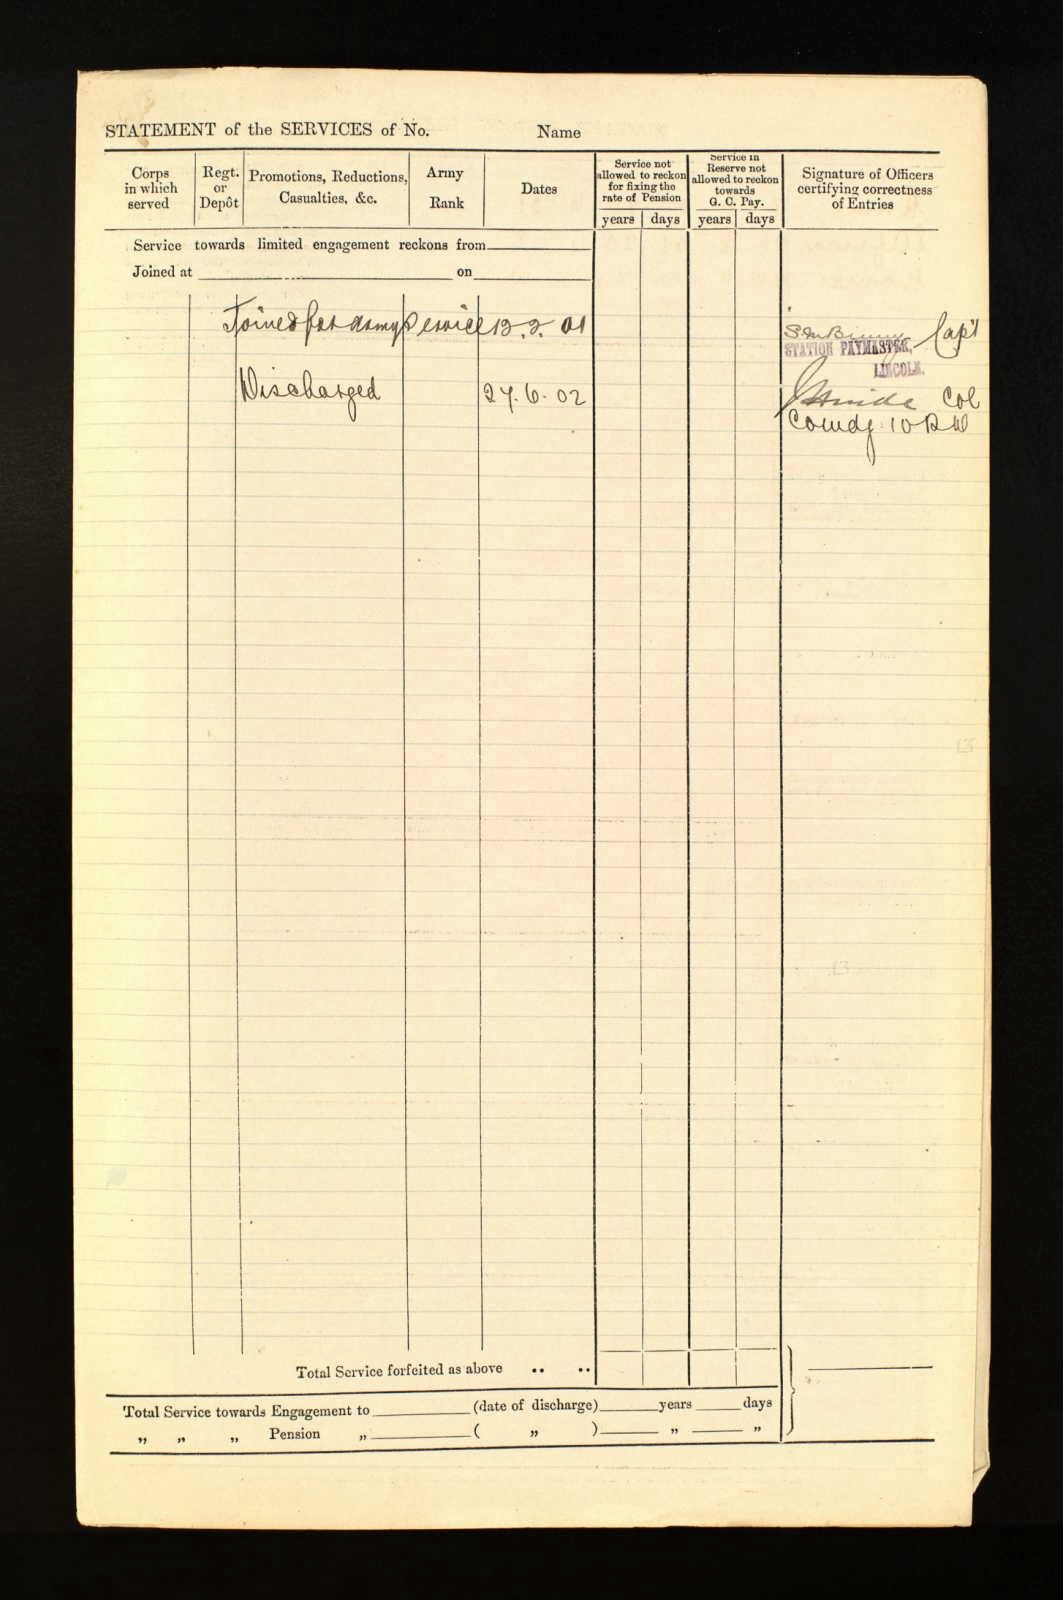 STATEMENT of the SERVICES of No. Name
Corps in which served
Regt. or Depôt
Promotions, Reductions, Casualties, &c.
Army Rank
Dates
Service not allowed to reckon for fixing the rate of Pension
years days
Service in Reserve not allowed to reckon towards G. C. Pay.
years days
Signature of Officers certifying correctness of Entries
Service towards limited engagement reckons from
Joined at on
Joined for Army Service 01
Capt
STATION PAYMASTER,
LINCOLN.
Discharged 27. 6. 02
Col
Comdg 10
Total Service forfeited as above .. ..
Total Service towards Engagement to (date of discharge) years days
„ „ „ Pension „ ( „ ) „ „